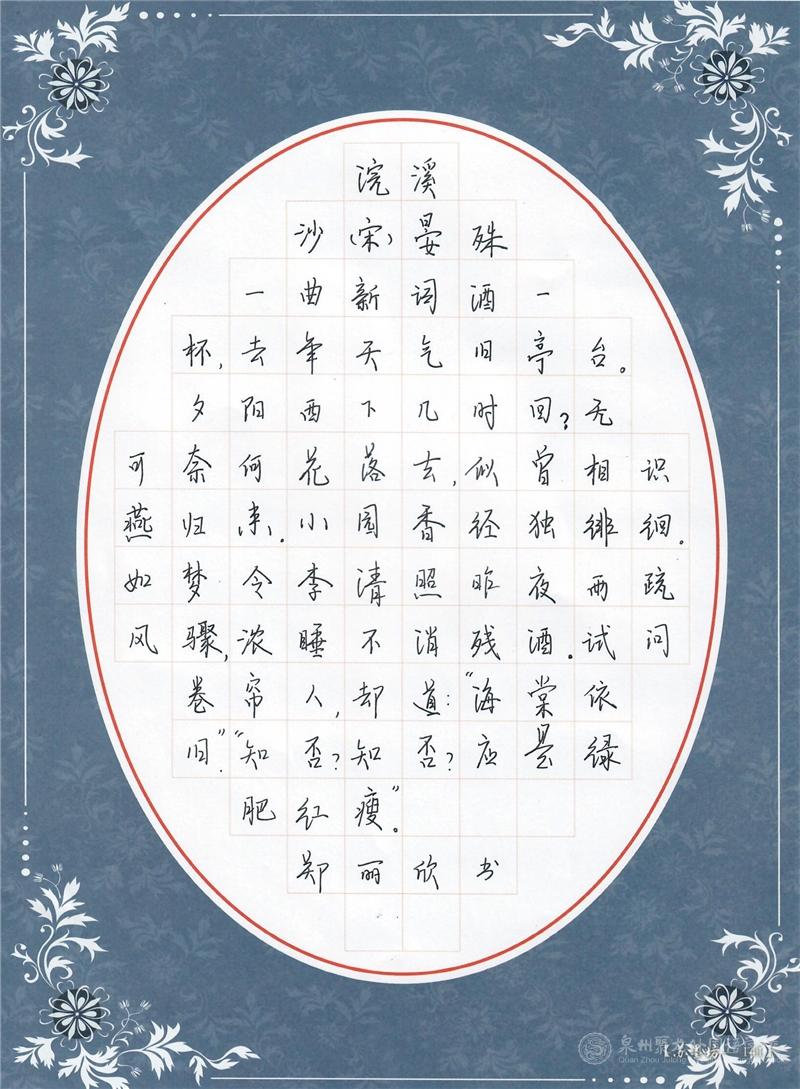 浣溪
沙(宋)晏殊
一曲新词酒一
杯,去年天气旧亭台。
夕阳西下几时回?无
可奈何花落去,似曾相识
燕归来.小园香径独徘徊。
如梦令李清照昨夜雨疏
风骤,浓睡不消残酒.试问
卷帘人,却道:“海棠依
旧”.“知否?知否?应是绿
肥红瘦”。
郑丽欣书
Quan Zhou Julong